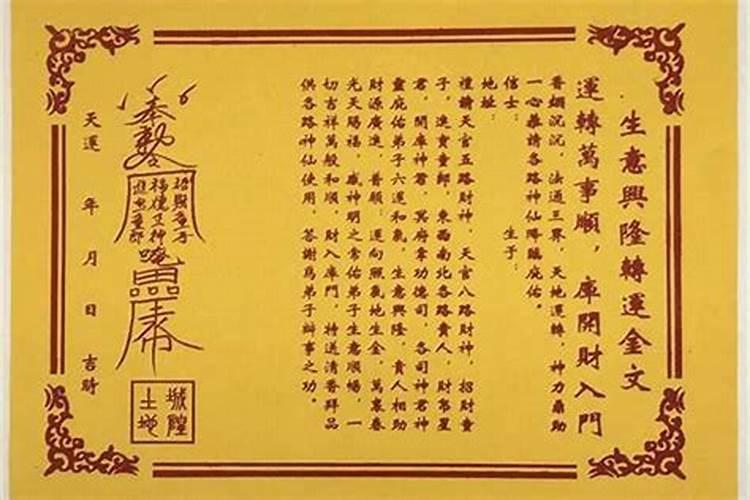 生意興隆轉運金文
運轉萬事順，庫開財入門
香煙沉沉，法通三界，天地運轉，神力鼎助
一心恭請各路神仙降臨庇佑。
信士：　生于：
地址：
禮請天官五路財神，天官八路財神，招財童
子，進寶童郎，東西南北各路貴人，財帛星
君，開庫神君，冥府掌功德司，各司神君神
靈庇佑弟子六運和氣，生意興隆，貴人相助
財源廣進，普願：運向照氣地生金，萬象春
光天賜福，感神明之常佑弟子生意順暢，一
切吉祥萬般和順，財入庫門，特送清香拜品
供各路神仙使用，答謝爲弟子辦事之功。
奉勅令
招財童子
福德正神
進寶童郎
城隍
土地
天運　年　月　日　吉時